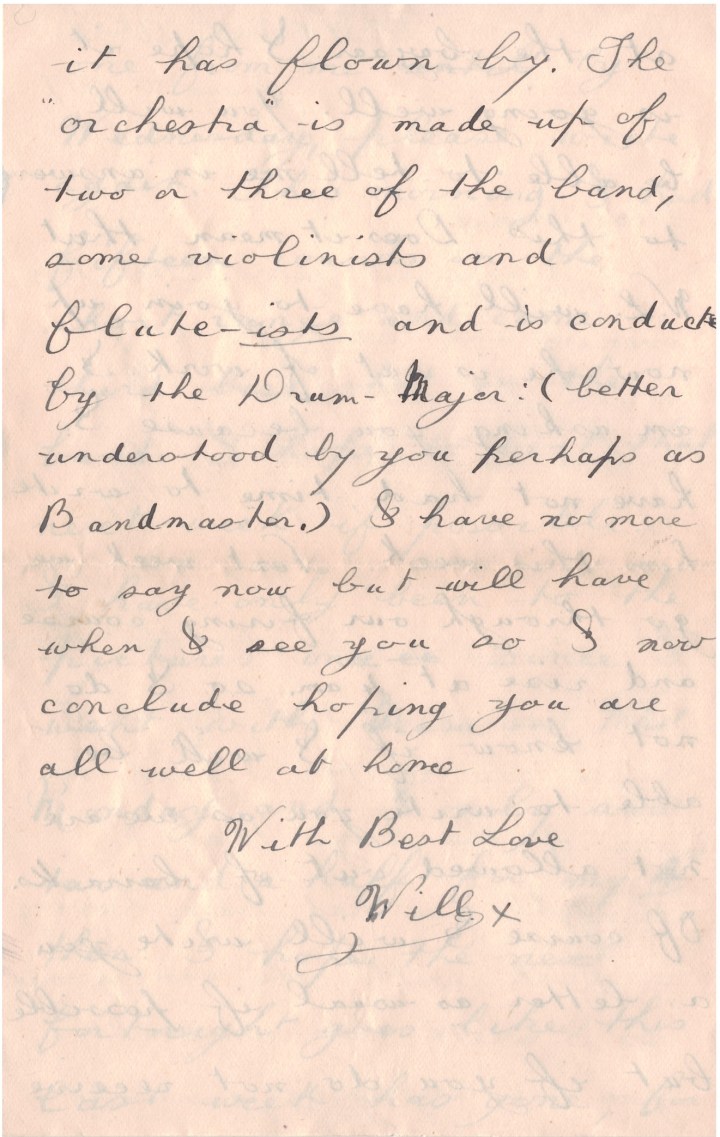 it has flown by. The
"orchestra" is made up of
two or three of the band,
some violinists and
flute-ists and is conducte
by the Drum-Major: (better
understood by you perhaps as
Bandmaster.) I have no more
to say now but will have
when I see you so I now
conclude hoping you are
all well at home
With Best Love
Will x